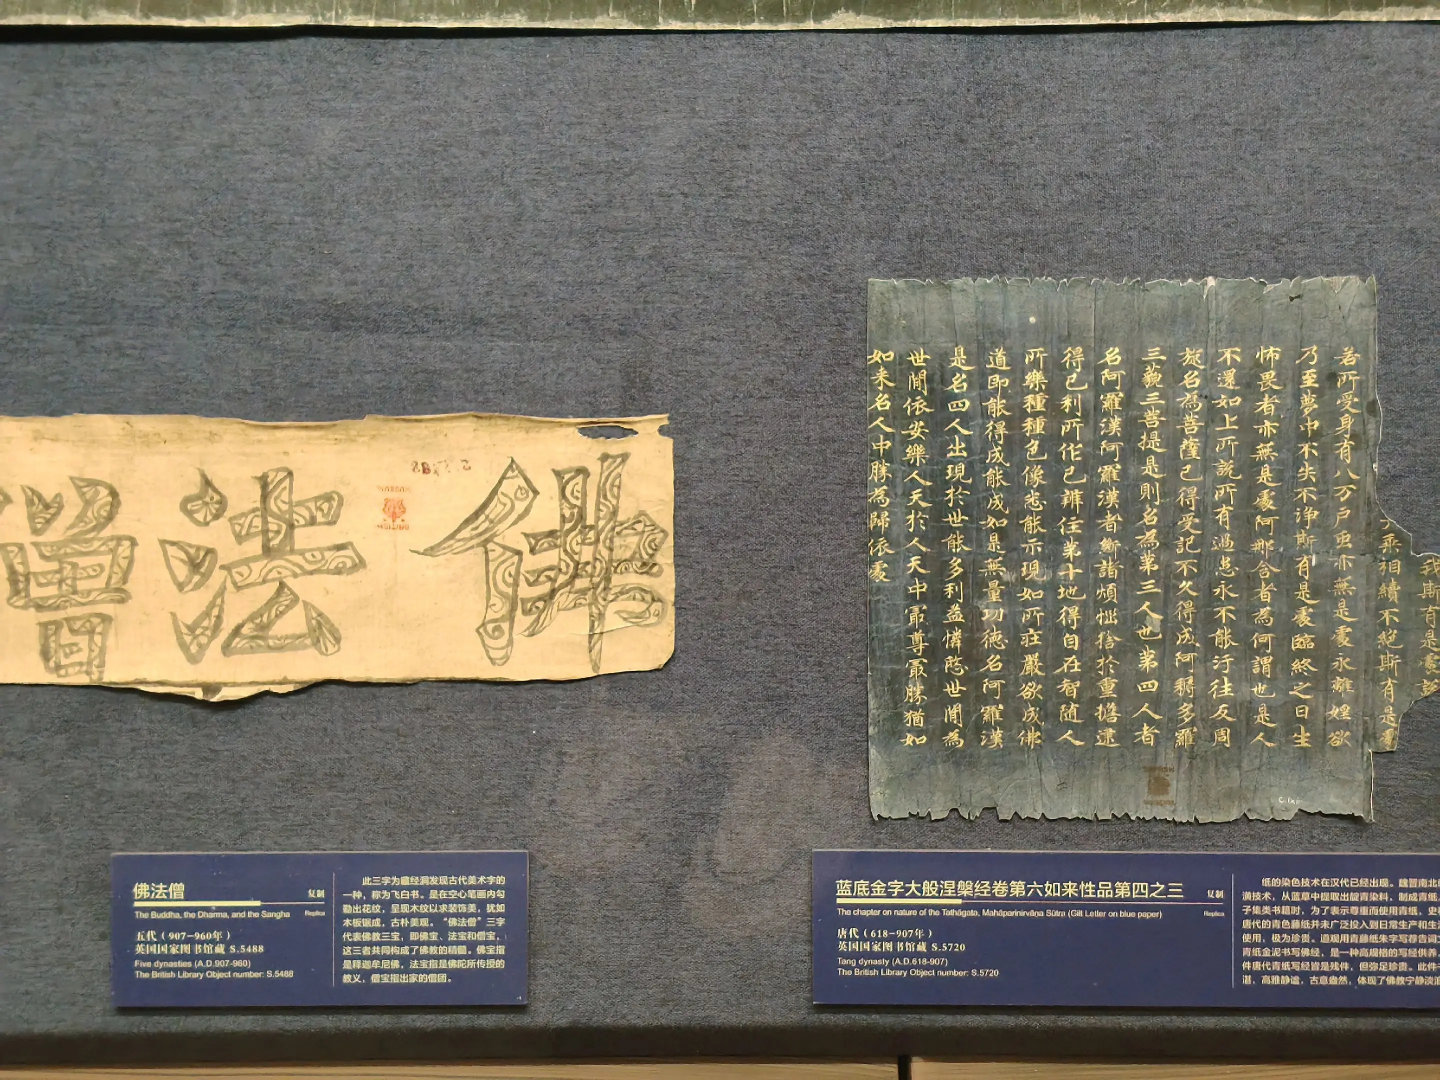 佛法僧
若所受身有八万戸虫亦無是處永離婬欲
乃至夢中不失不淨斯有是處臨終之日生
怖畏者亦無是處阿那含者為何謂也是人
不還如上所說所有過患永不能汙往反周
旋名為菩薩已得受記不久得成阿耨多羅
三藐三菩提是則名為第三人也第四人者
名阿羅漢阿羅漢者斷諸煩惱捨於重擔逮
得已利所作已辦住第十地得自在智隨人
所樂種種色像悉能示現如所莊嚴欲成佛
道即能得成能成如是無量功德名阿羅漢
是名四人出現於世能多利益憐愍世間為
世間依安樂人天於人天中最尊最勝猶如
如来名人中勝為歸依處
我斯有是處
乘相續不絕斯有是處
佛法僧
复制
The Buddha, the Dharma, and the Sangha
Replica
五代（907-960年）
英国国家图书馆藏 S.5488
Five dynasties (A.D.907-960)
The British Library Object number: S.5488
此三字为藏经洞发现古代美术字的
一种，称为飞白书。是在空心笔画内勾
勒出花纹，呈现木纹以求装饰美，犹如
木板锯成，古朴美观。“佛法僧”三字
代表佛教三宝，即佛宝、法宝和僧宝，
这三者共同构成了佛教的精髓。佛宝指
是释迦牟尼佛，法宝指是佛陀所传授的
教义，僧宝指出家的僧团。
蓝底金字大般涅槃经卷第六如来性品第四之三
复制
The chapter on nature of the Tathāgata, Mahāparinirvāṇa Sūtra (Gilt Letter on blue paper)
Replica
唐代（618-907年）
英国国家图书馆藏 S.5720
Tang dynasty (A.D.618-907)
The British Library Object number: S.5720
纸的染色技术在汉代已经出现。魏晋南北
潢技术，从蓝草中提取出靛青染料，制成青纸。
子集类书籍时，为了表示尊重而使用青纸，史
唐代的青色藤纸并未广泛投入到日常生产和生
使用，极为珍贵。道观用青藤纸朱字写荐告词文
青纸金泥书写佛经，是一种高规格的写经供养。
件唐代青纸写经皆是残件，但弥足珍贵。此件
湛，高雅静谧，古意盎然，体现了佛教宁静淡泊